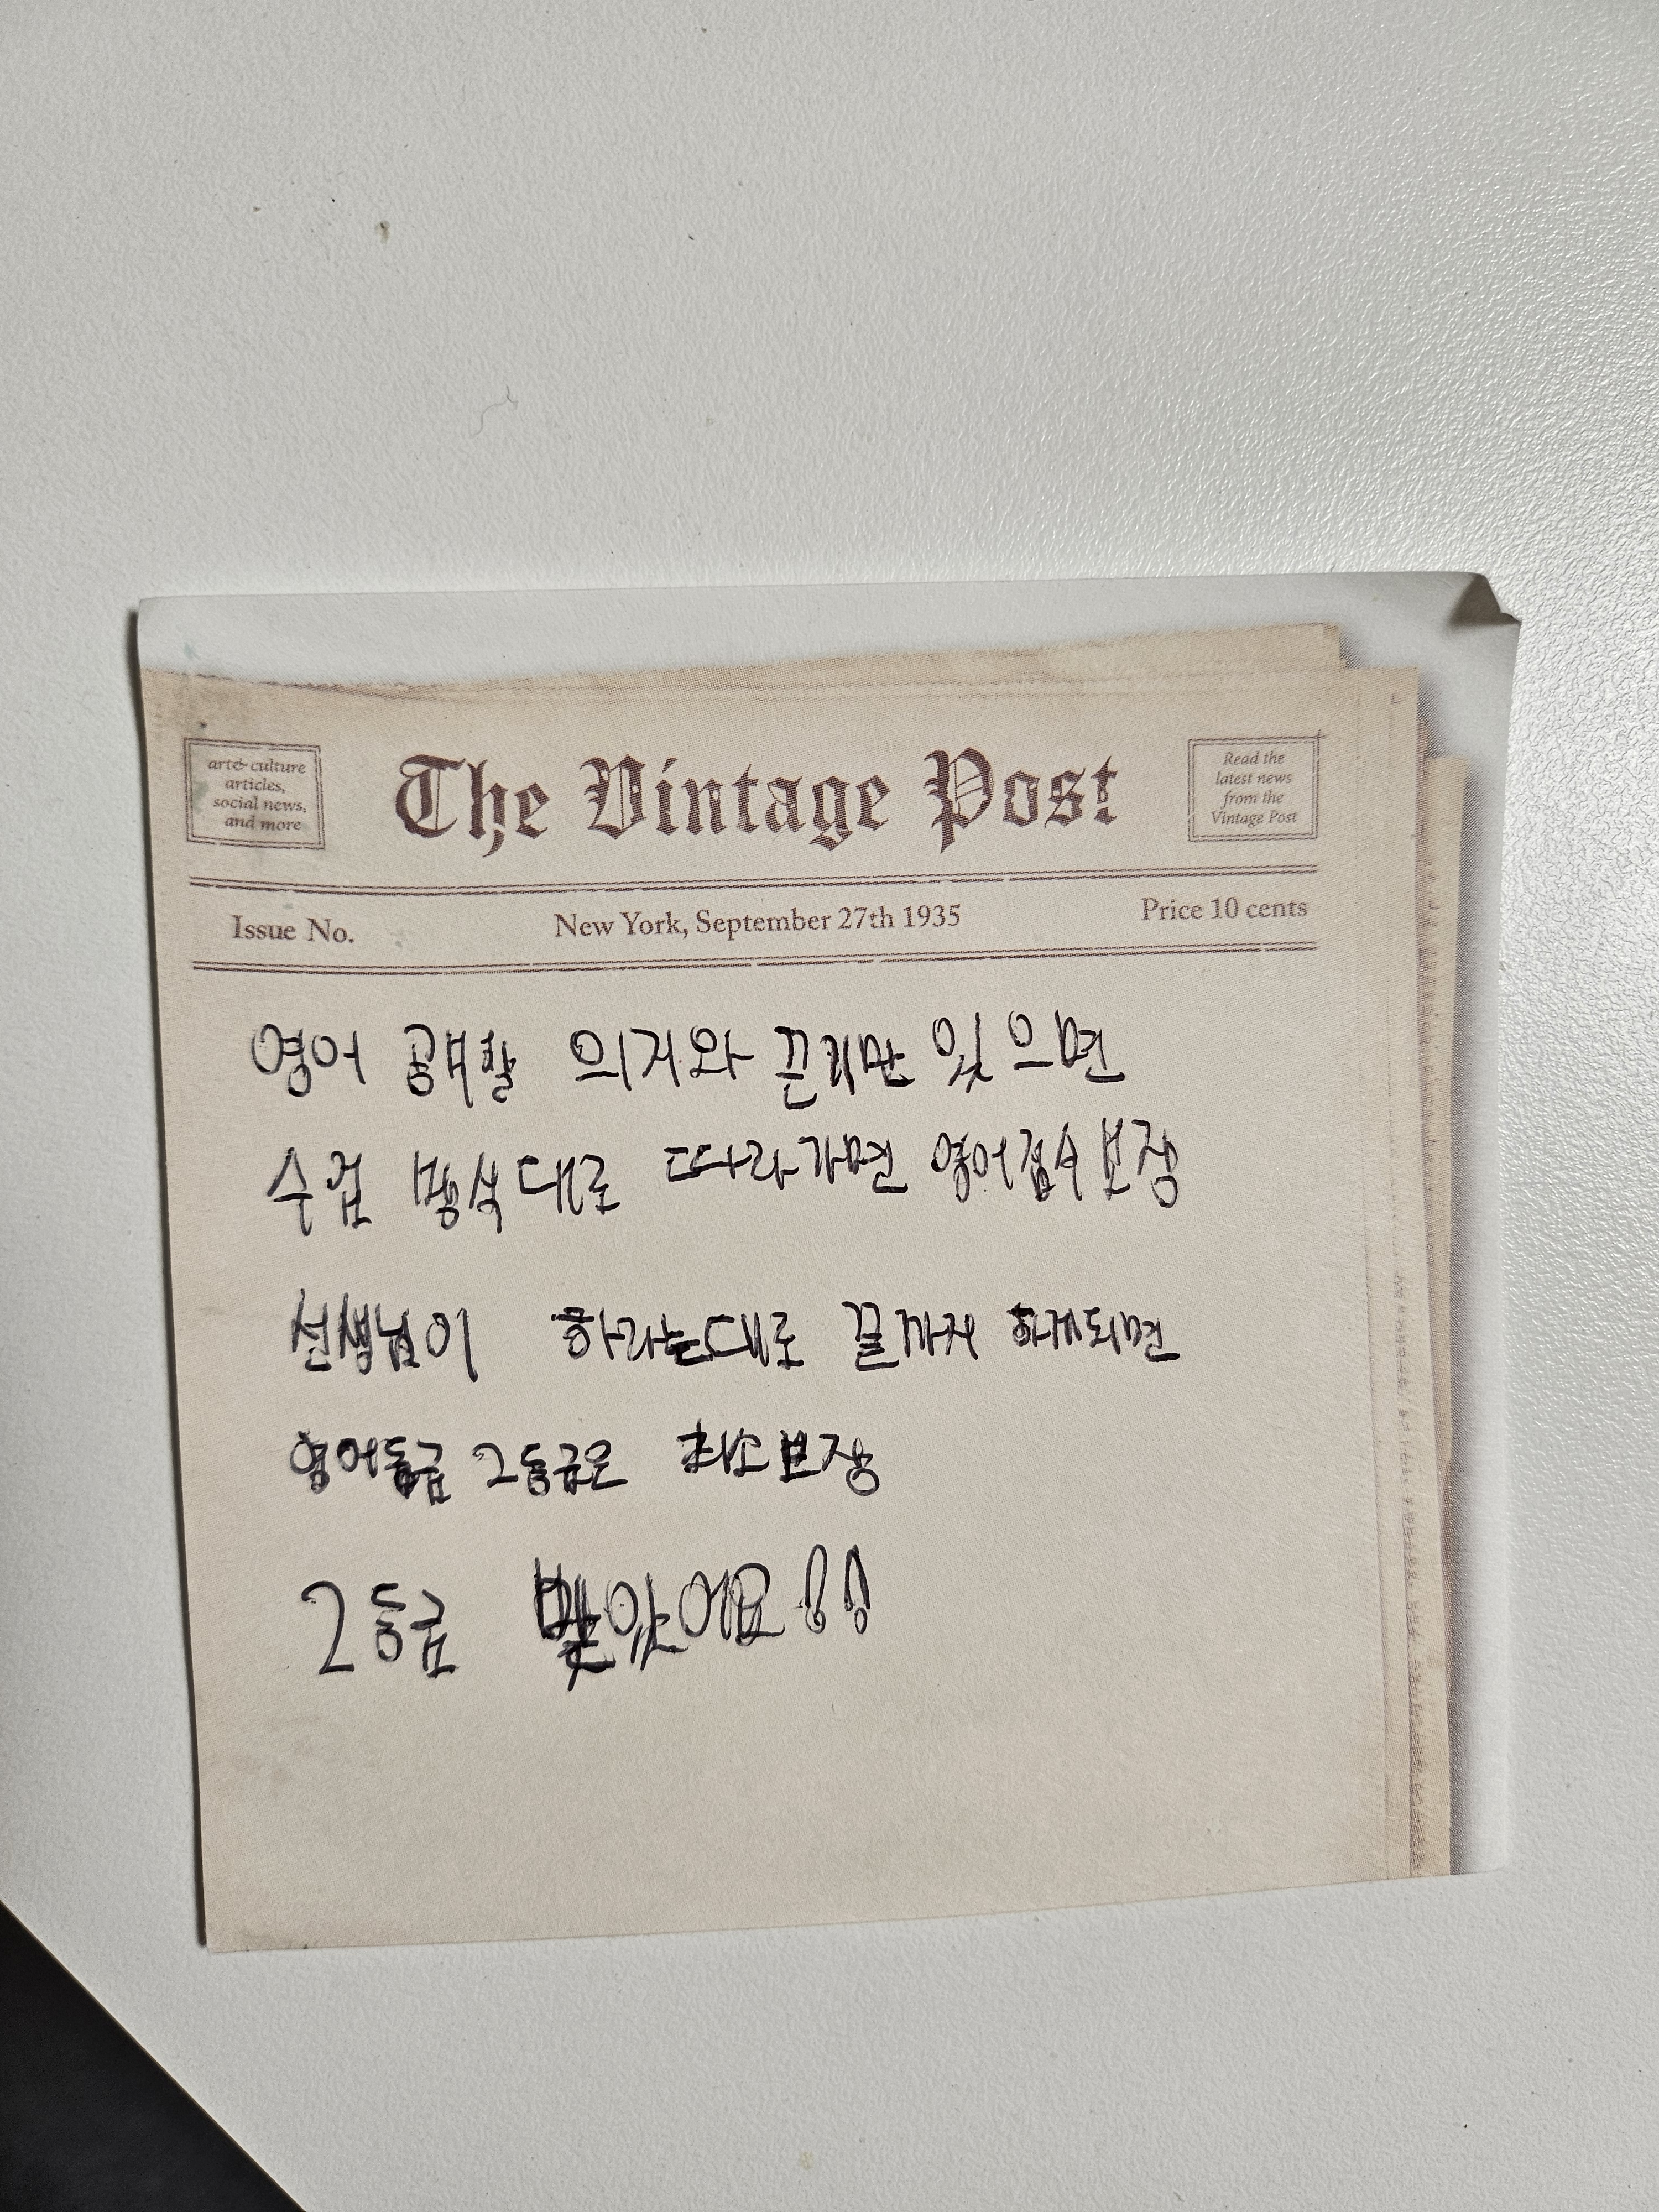 art& culture
articles,
social news,
and more
The Vintage Post
Read the
latest news
from the
Vintage Post
Issue No.
New York, September 27th 1935
Price 10 cents
영어 공부할 의지와 끈기만 있으면
수업 방식대로 따라가면 영어점수보장
선생님이 하라는대로 끝까지 하게되면
영어등급 2등급은 최소보장
2등급